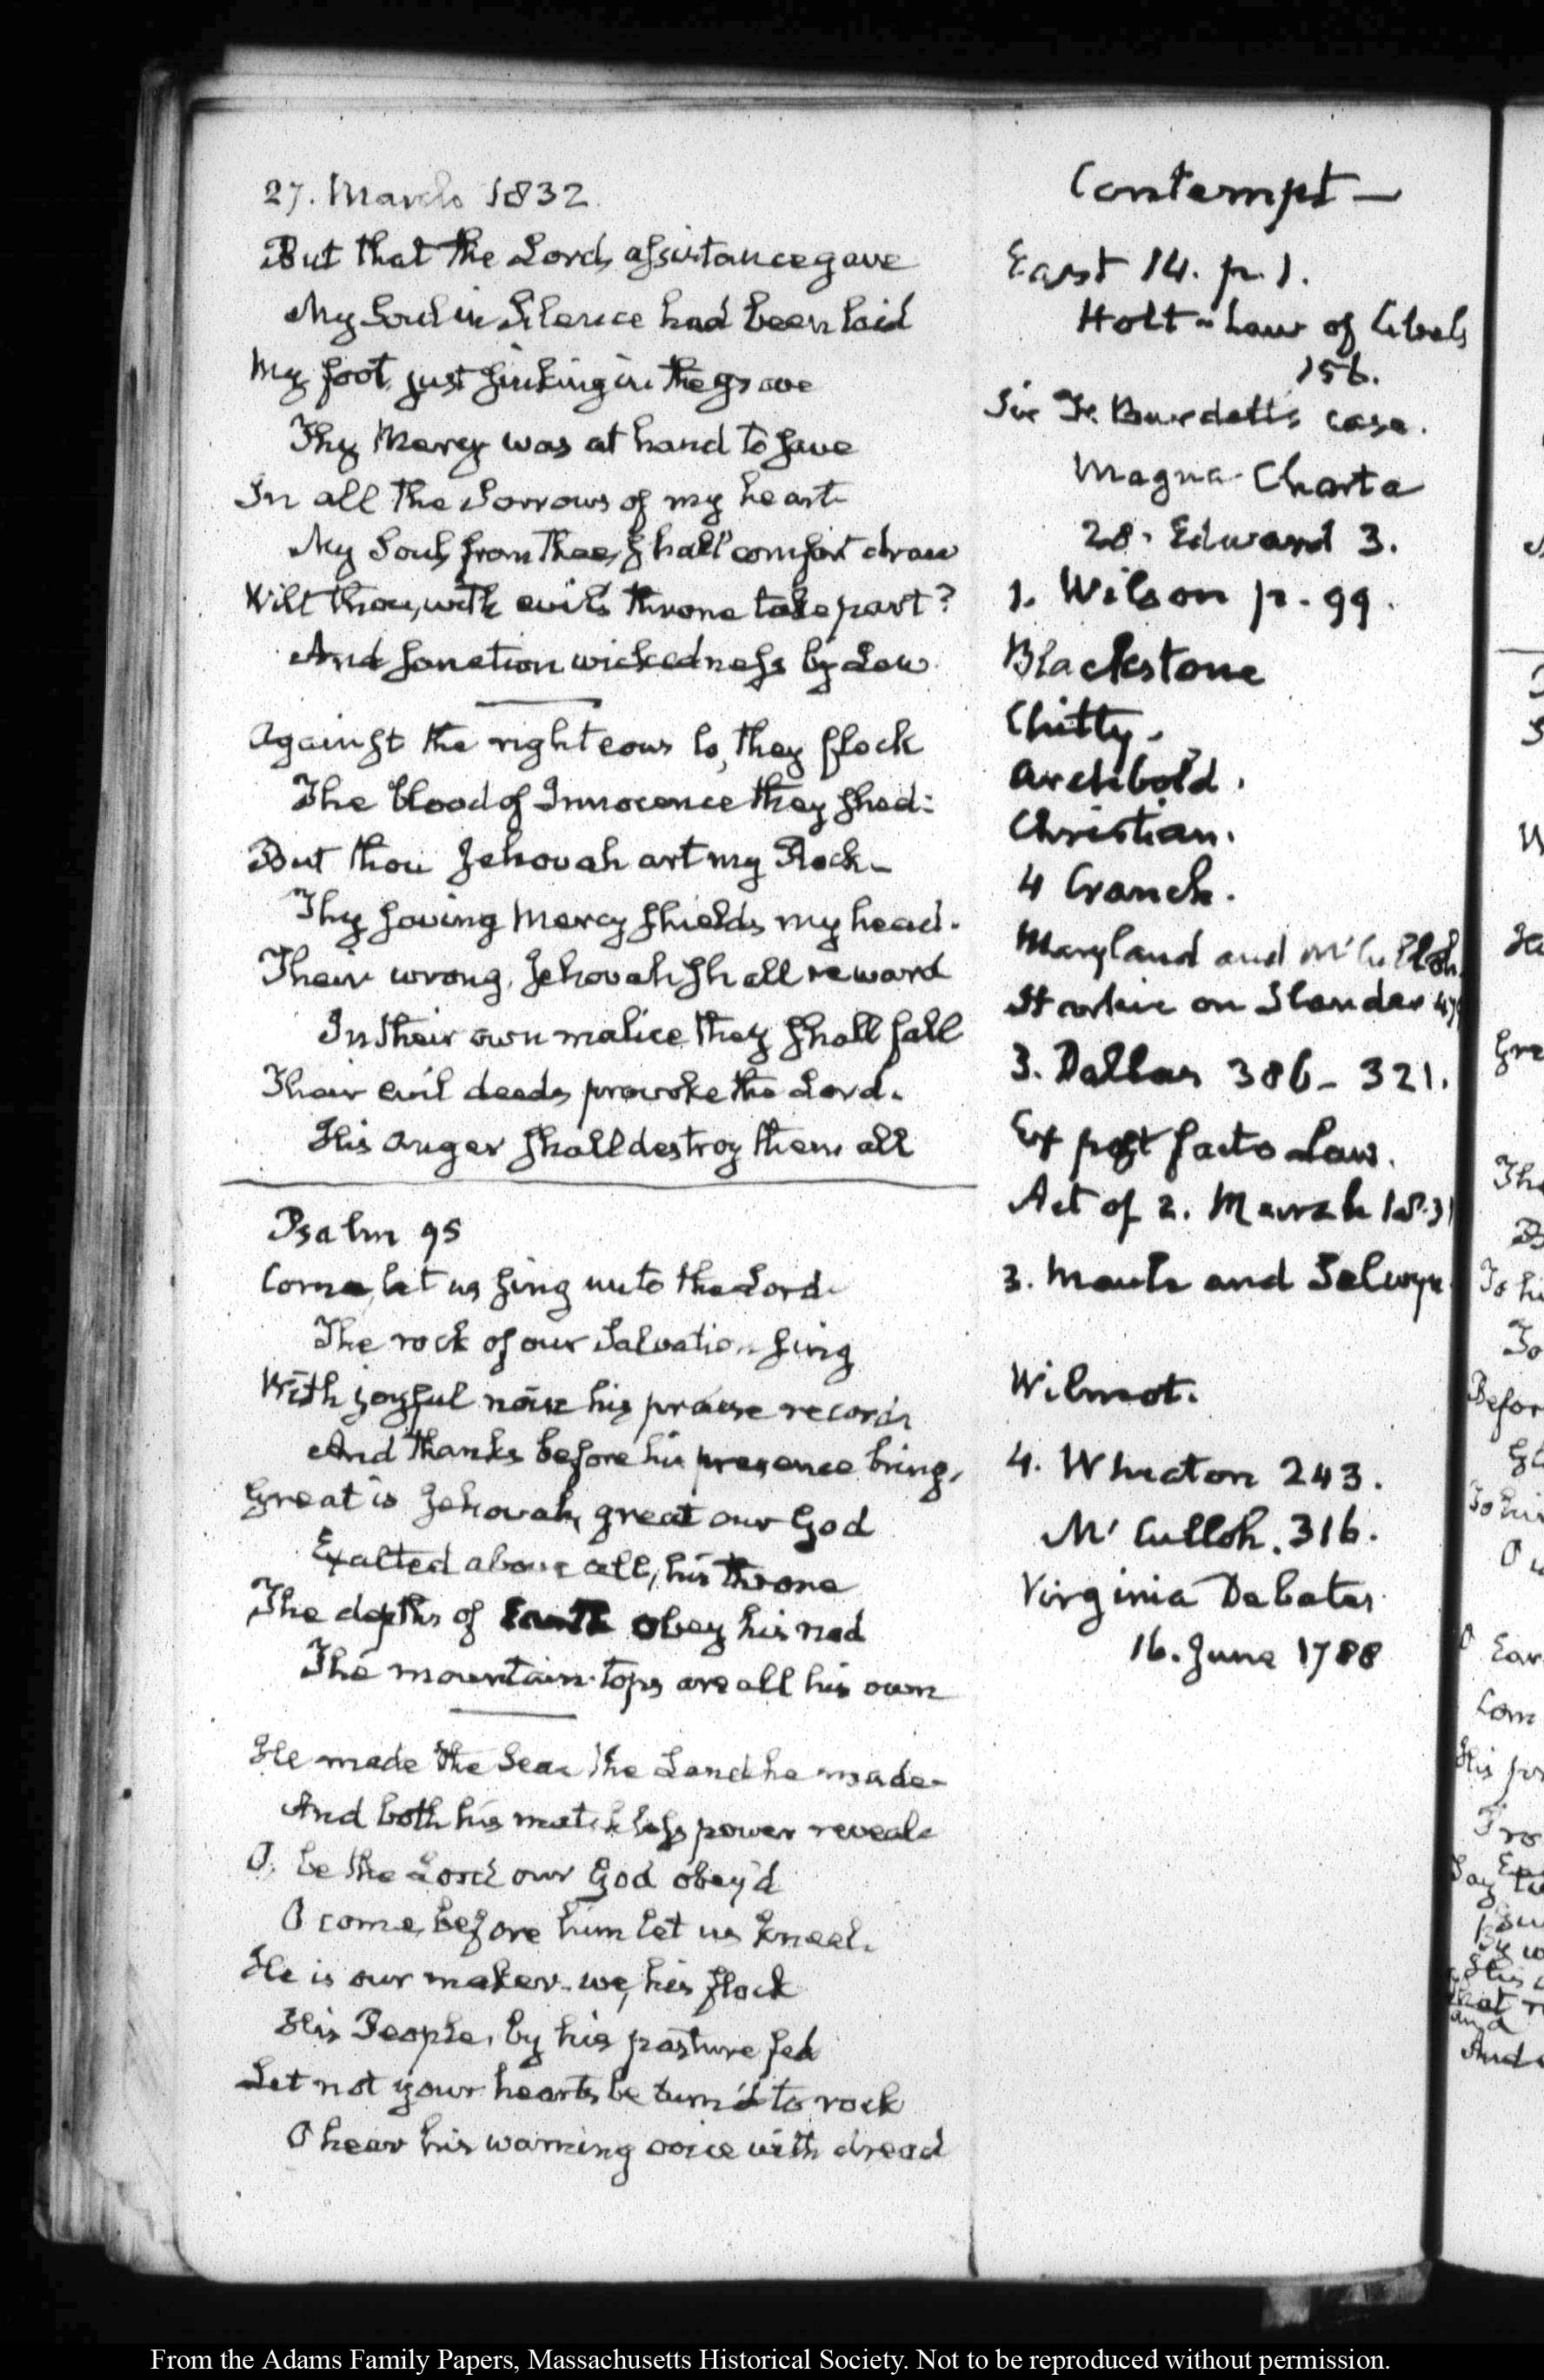 27. March 1832.
But that the Lord, assistance gave
My Soul in Silence had been laid
My foot, just sinking in the grave
Thy Mercy was at hand to save
In all the Sorrows of my heart
My Soul, from Thee, shall comfort draw
Wilt thou, with evil's throne take part?
And sanction wickedness by Law.
Against the righteous lo, they flock
The blood of Innocence they shed:
But thou Jehovah art my Rock—
Thy saving Mercy shields my head.
Their wrong, Jehovah shall reward
In their own malice they shall fall
Their evil deeds provoke the Lord.
His anger shall destroy them all
Psalm 95
Come, let us sing unto the Lord
The rock of our Salvation sing
With joyful noise his praise record
And thanks before his presence bring,
Great is Jehovah, great our God
Exalted above all, his throne
The depths of Earth obey his nod
The mountain-tops are all his own
He made the Sea. The Land he made—
And both his matchless power reveal.
O, be the Lord our God obey'd
O come, before him let us kneel.
He is our maker—we, his flock
His People, by his pasture fed
Let not your hearts be turn'd to rock
O hear his warning voice with dread
Contempt—
East 14. p. 1.
Holt—Law of Libels
156.
Sir F. Burdett's case.
Magna Charta
28. Edward 3.
1. Wilson p. 99.
Blackstone
Chitty.
Archibold.
Christian.
4 Cranch.
Maryland and McCulloh.
Starkie on Slander
3. Dallas 386—321.
Ex post facto Law.
Act of 2. March 1831
3. Maule and Selwyn
Wilmot.
4. Wheaton 243.
Mc Culloh. 316.
Virginia Debates
16. June 1788
From the Adams Family Papers, Massachusetts Historical Society. Not to be reproduced without permission.